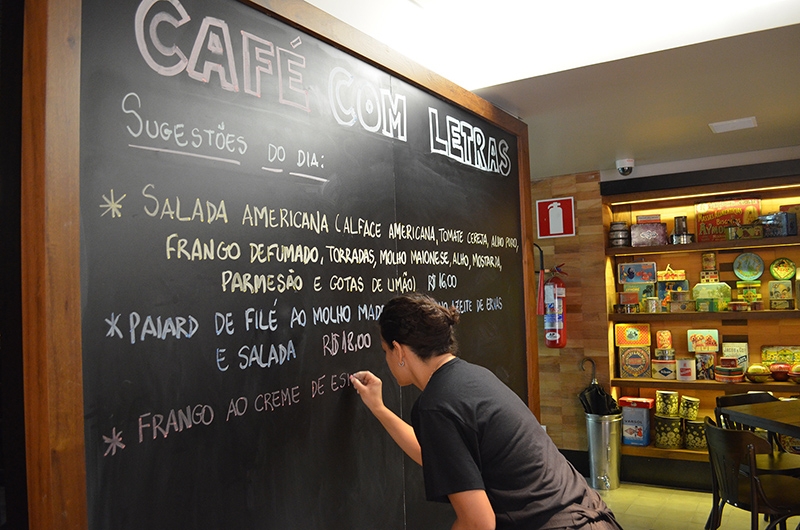 CAFÉ COM LETRAS
SUGESTÕES DO DIA:
* SALADA AMERICANA (ALFACE AMERICANA, TOMATE CEREJA, ALHO PORO,
FRANGO DEFUMADO, TORRADAS, MOLHO MAIONESE, ALHO, MOSTARDA,
PARMESÃO E GOTAS DE LIMÃO) R$16,00
* PAIARD DE FILÉ AO MOLHO AZEITE DE ERVAS
E SALADA R$18,00
* FRANGO AO CREME DE